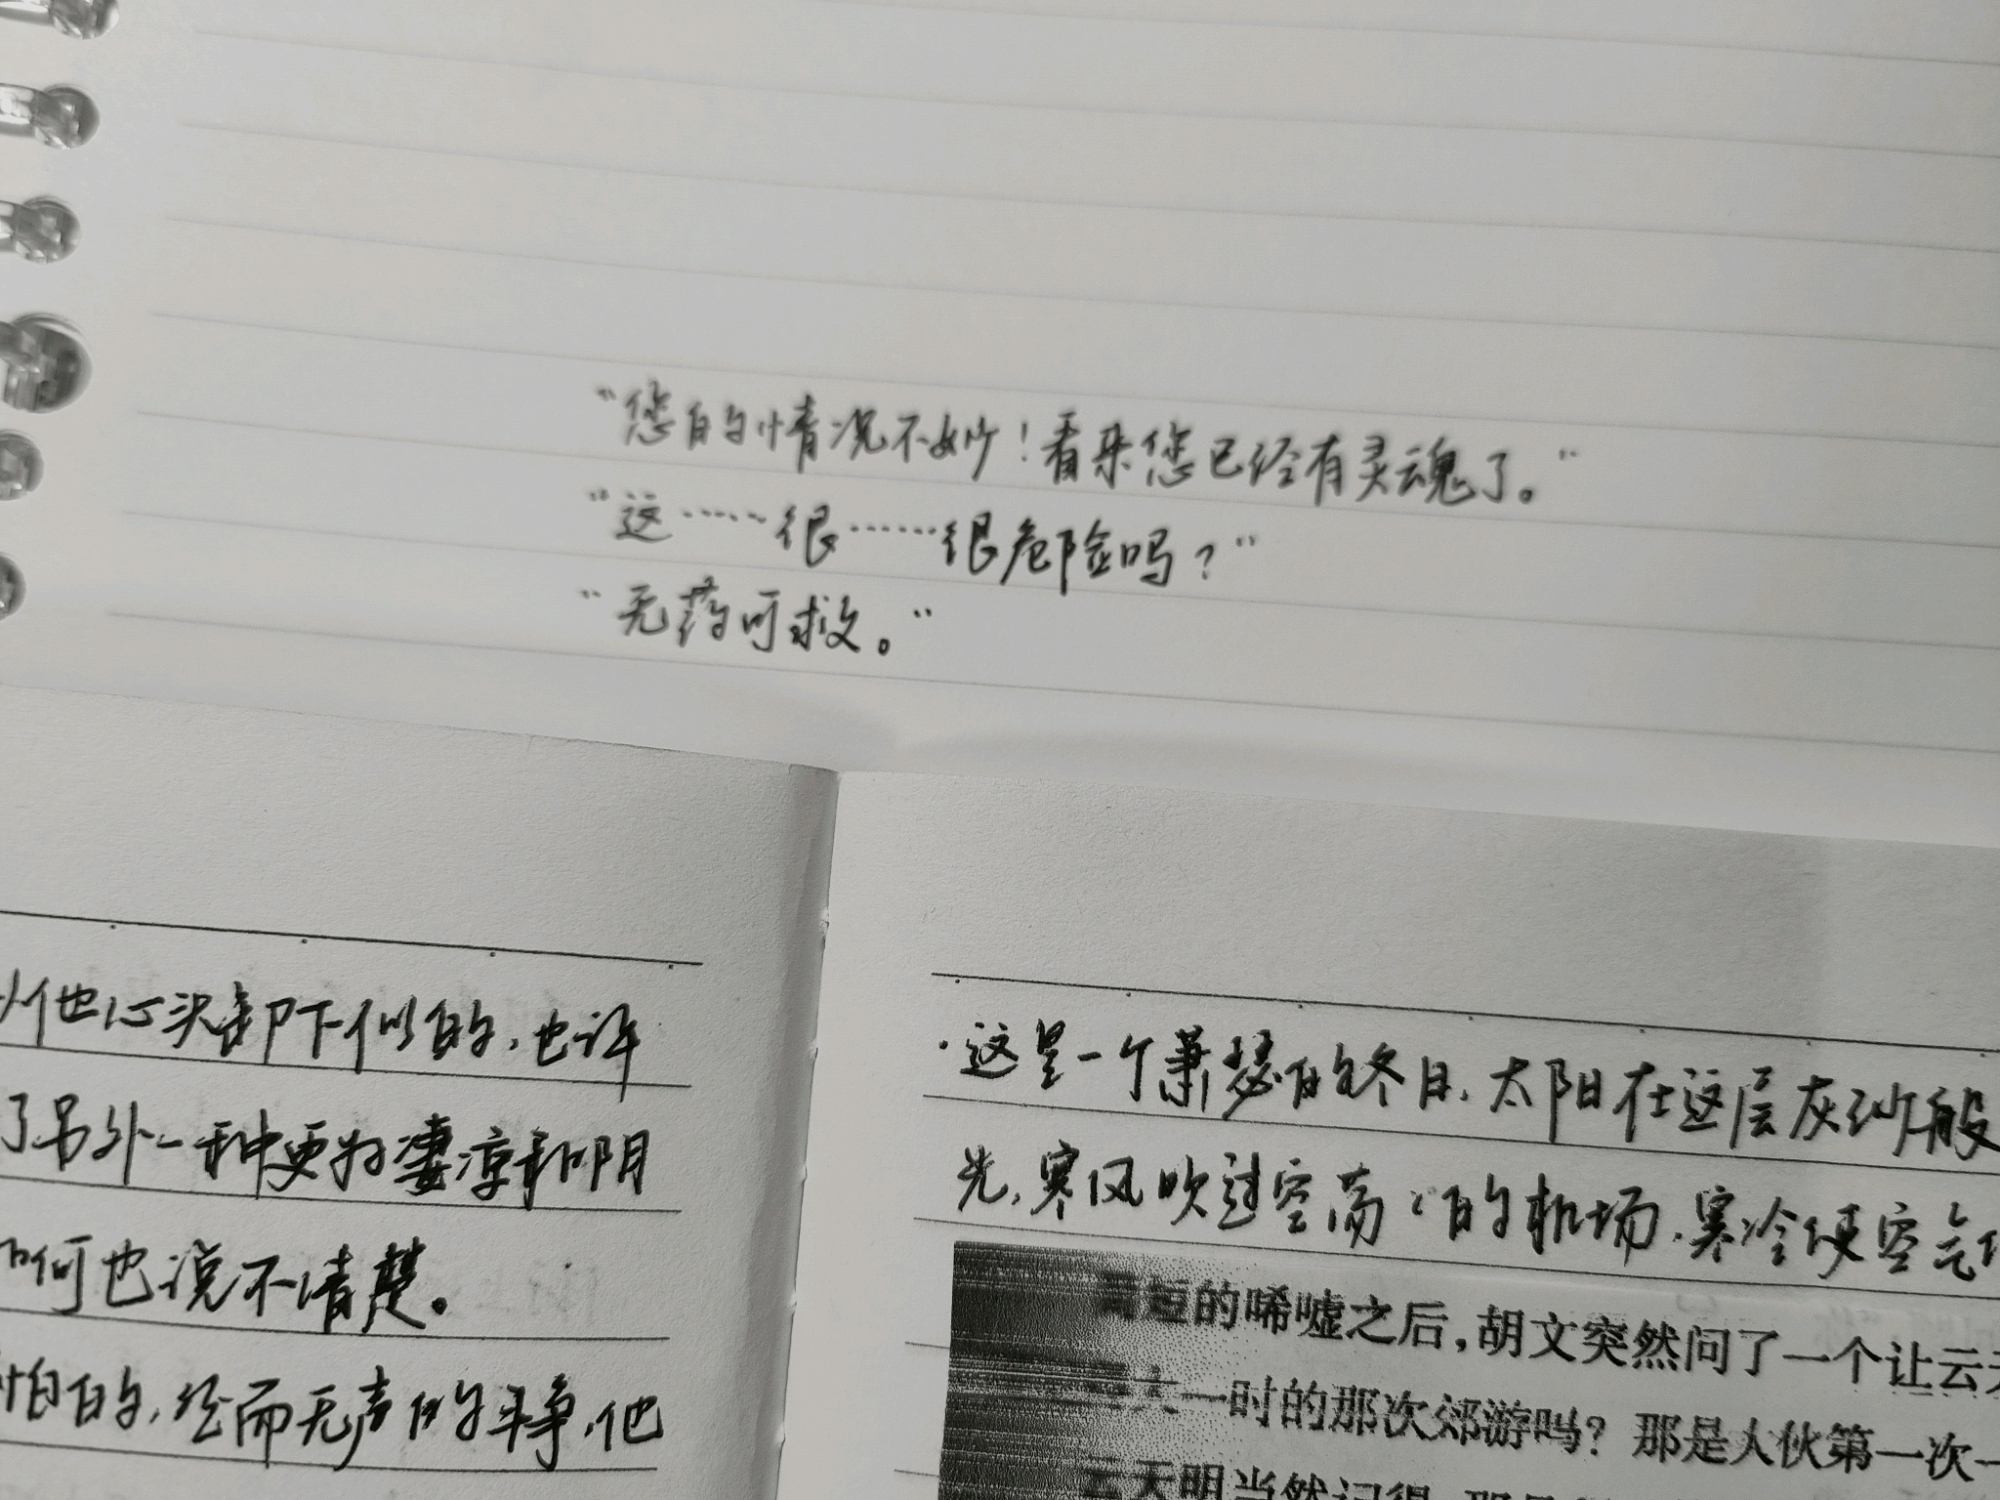 “您的情况不妙！看来您已经有灵魂了。”
“这……很……很危险吗？”
“无药可救。”
从他心头卸下似的，也许
了另外一种更为凄凉和阴
如何也说不清楚。
怕的，经而无声的斗争，他
·这是一个萧瑟的冬日，太阳在这层灰沙般
光，寒风吹过空荡々的机场，寒冷使空气
短的唏嘘之后，胡文突然问了一个让云天
大一时的那次郊游吗？那是大伙第一次一
云天明当然记得，那是